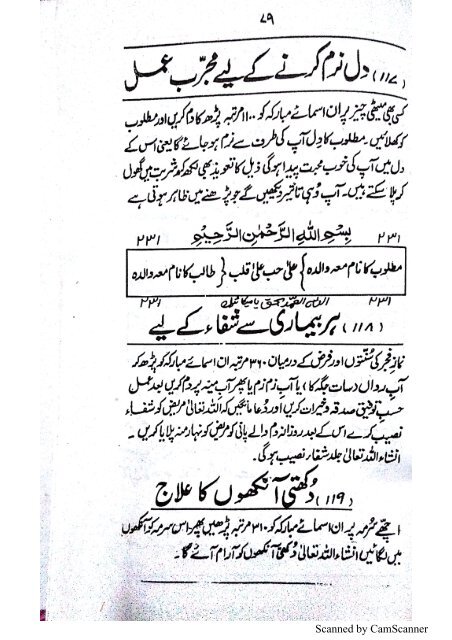 ۷۹
(۱۱۷) دل نرم کرنے کے لیے مجرّب عمل
کسی بھی میٹھی چیز پر ان اسمائے مبارکہ کو ۱۱۰۰ مرتبہ پڑھ کر دم کریں اور مطلوب
کو کھلائیں۔ مطلوب کا دل آپ کی طرف سے نرم ہو جائے گا یعنی اس کے
دل میں آپ کی خوب محبت پیدا ہوگی ذیل کا تعویذ بھی لکھ کر شربت میں گھول
کر پلا سکتے ہیں۔ آپ وہی تاثیر دیکھیں گے جو پڑھنے میں ظاہر ہوتی ہے
۲۳۱ بِسْمِ اللهِ الرَّحْمٰنِ الرَّحِيْمِ ۲۳۱
مطلوب کا نام معہ والدہ } علیٰ حب علیٰ قلب { طالب کا نام معہ والدہ
۲۳۱ ۲۳۱
(۱۱۸) ہر بیماری سے شفاء کے لیے
نمازِ فجر کی سنتوں اور فرض کے درمیان ۳۶۰ مرتبہ ان اسمائے مبارکہ کو پڑھ کر
آبِ رواں (سات جگہ کا) یا آبِ زم زم یا پھر آبِ مینہ پر دم کریں بعد عمل
حسبِ توفیق صدقہ و خیرات کریں اور دُعا مانگیں کہ اللہ تعالیٰ مریض کو شفاء
نصیب کرے اس کے بعد روزانہ دم والے پانی کو مریض کو نہار منہ پلایا کریں۔
انشاء اللہ تعالیٰ جلد شفاء نصیب ہوگی۔
(۱۱۹) دُکھتی آنکھوں کا علاج
اچھے سُرمہ پر ان اسمائے مبارکہ کو ۳۱۰ مرتبہ پڑھیں پھر اس سرمہ کو آنکھوں
میں لگائیں انشاء اللہ تعالیٰ دُکھتی آنکھوں کو آرام آئے گا۔
Scanned by CamScanner